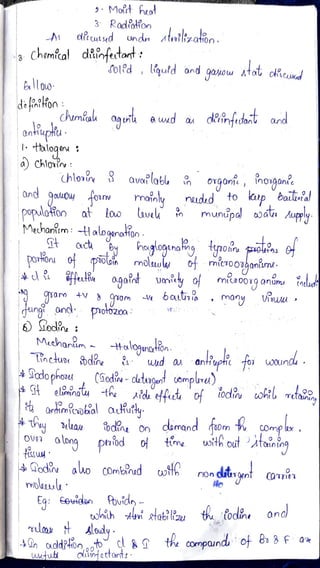 2. Moist heat
3. Radiation
- As discussed under sterilization.
3. Chemical disinfectant :
Solid, liquid and gaseous state discussed
follow.
definition :
Chemicals agents used as disinfectant and
antiseptic.
1. Halogens :
a) Chlorine :
Chlorine is available in organic, inorganic
and gaseous form mainly needed to keep bacterial
population at low levels in municipal water supply.
Mechanism: Halogenation.
It act by haglogenating tyrosine proteins of
portions of protein molecules of microorganisms.
* cl is effective against variety of microorganisms includi
-ng gram +ve & gram -ve bacteria, many viruses,
fungi and protozoa.
b) Iodine :
Mechanism - Halogenation.
Tincture iodine is used as antiseptic for wounds.
* Iodophores (Iodine - detergent complexes)
* It eliminate the side effects of iodine while retaining
its antimicrobial activity.
* They release iodine on demand from the complex.
over along period of time without staining
tissues.
* Iodine also combined with non detergent carrier
molecule.
Eg: Povidn -
which stabilizes the iodine and
release it slowly.
* In addition to cl & I the compounds of Br & F are
useful disinfectants.